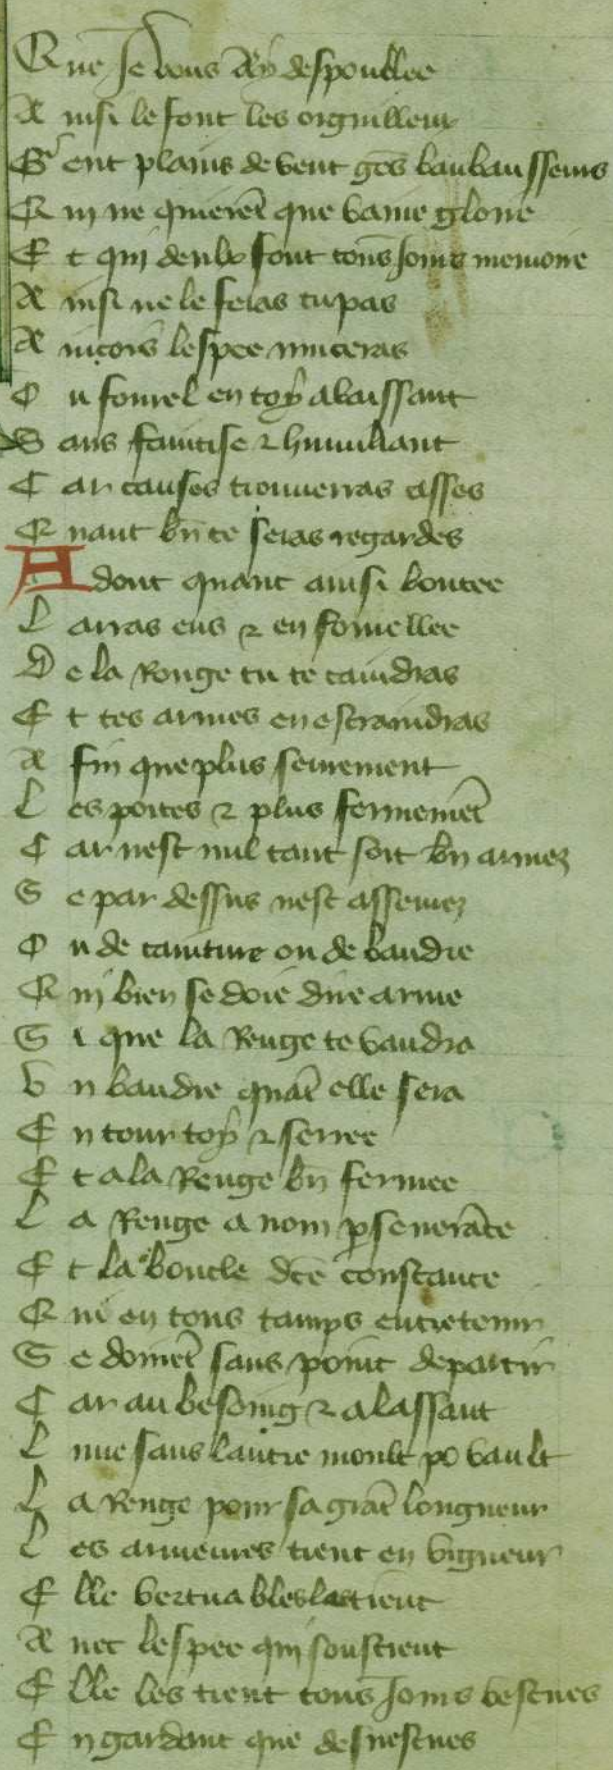 Que je vous ay despoullee
Ainsi le font les orguilleux
Gent plains de vent ges baubanssens
Qui ne quierēt que vainne gloire
Et qui deulx font tous jours memoire
Ainsi ne le feras tu pas
Ainçois lespee muceras
Ou fourrel en toy abaissant
Sans faintise ⁊ humiliant
Car causes trouverras asses
Quant bn̄ te seras regardes
Adont quant ainsi boutee
Larras ens ⁊ en fourellee
De la Renge tu te caindras
Et tes armes en estraindras
A fin que plus seurement
Les portes ⁊ plus fermemēt
Car nest nul tant soit bn̄ armez
Se par dessus nest assenez
Ou de cainture ou de baudre
Qui bien se doie dire arme
Si que la Renge te vaudra
Un baudre quāt elle sera
En tour toy ⁊ serree
Et a la Renge bn̄ fermee
La Renge a nom pseverāce
Et la boucle dc̄e constance
Qui en tous tamps entretenir
Se doivēt sans point departir
Car au besoing ⁊ a lassaut
Lune sans lautre moult po vault
La Renge pour sa grāt longueur
Les armeures tient en vigueur
Elle vertuables les tient
Avec lespee qui soustient
Elle les tient tous jours vestues
En gardant que desvestues